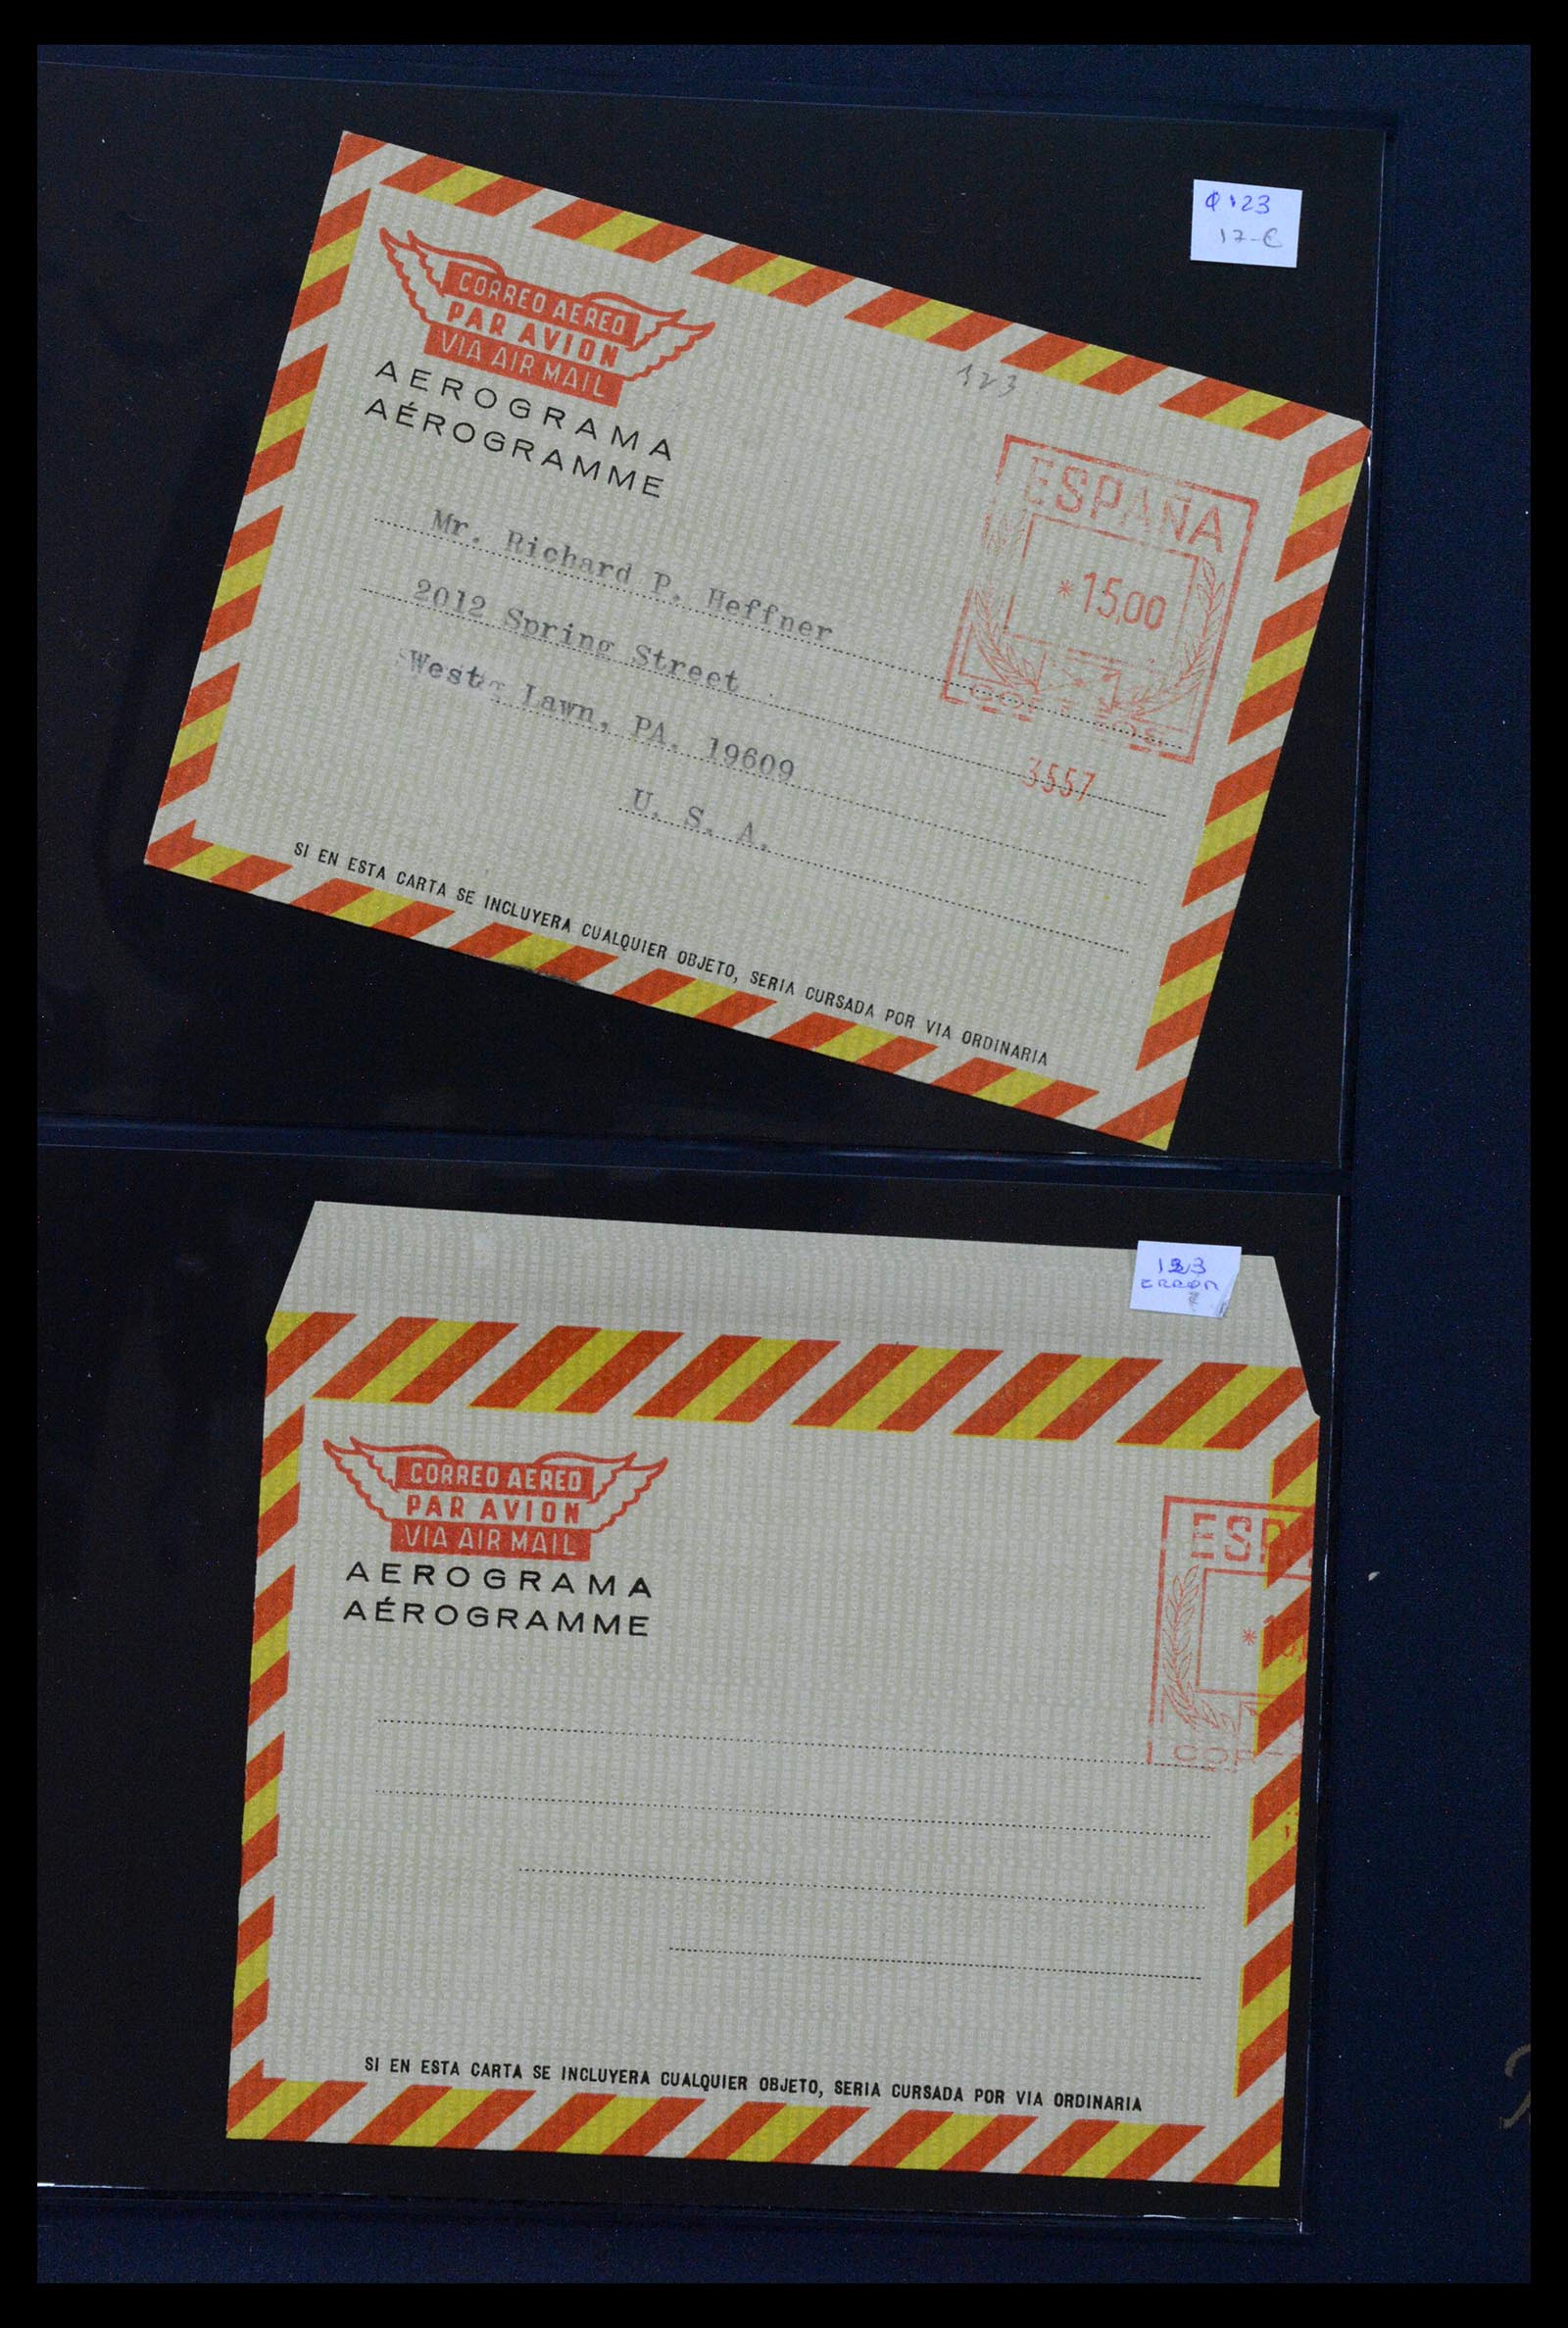 123
17-€
CORREO AEREO
PAR AVION
VIA AIR MAIL
AEROGRAMA
AÉROGRAMME
123
ESPAÑA
*15,00
CORREOS
3557
Mr. Richard P. Heffner
2012 Spring Street
West Lawn, PA. 19609
U. S. A.
SI EN ESTA CARTA SE INCLUYERA CUALQUIER OBJETO, SERIA CURSADA POR VIA ORDINARIA
123
ERROR
CORREO AEREO
PAR AVION
VIA AIR MAIL
AEROGRAMA
AÉROGRAMME
ESP
*1
COR
SI EN ESTA CARTA SE INCLUYERA CUALQUIER OBJETO, SERIA CURSADA POR VIA ORDINARIA